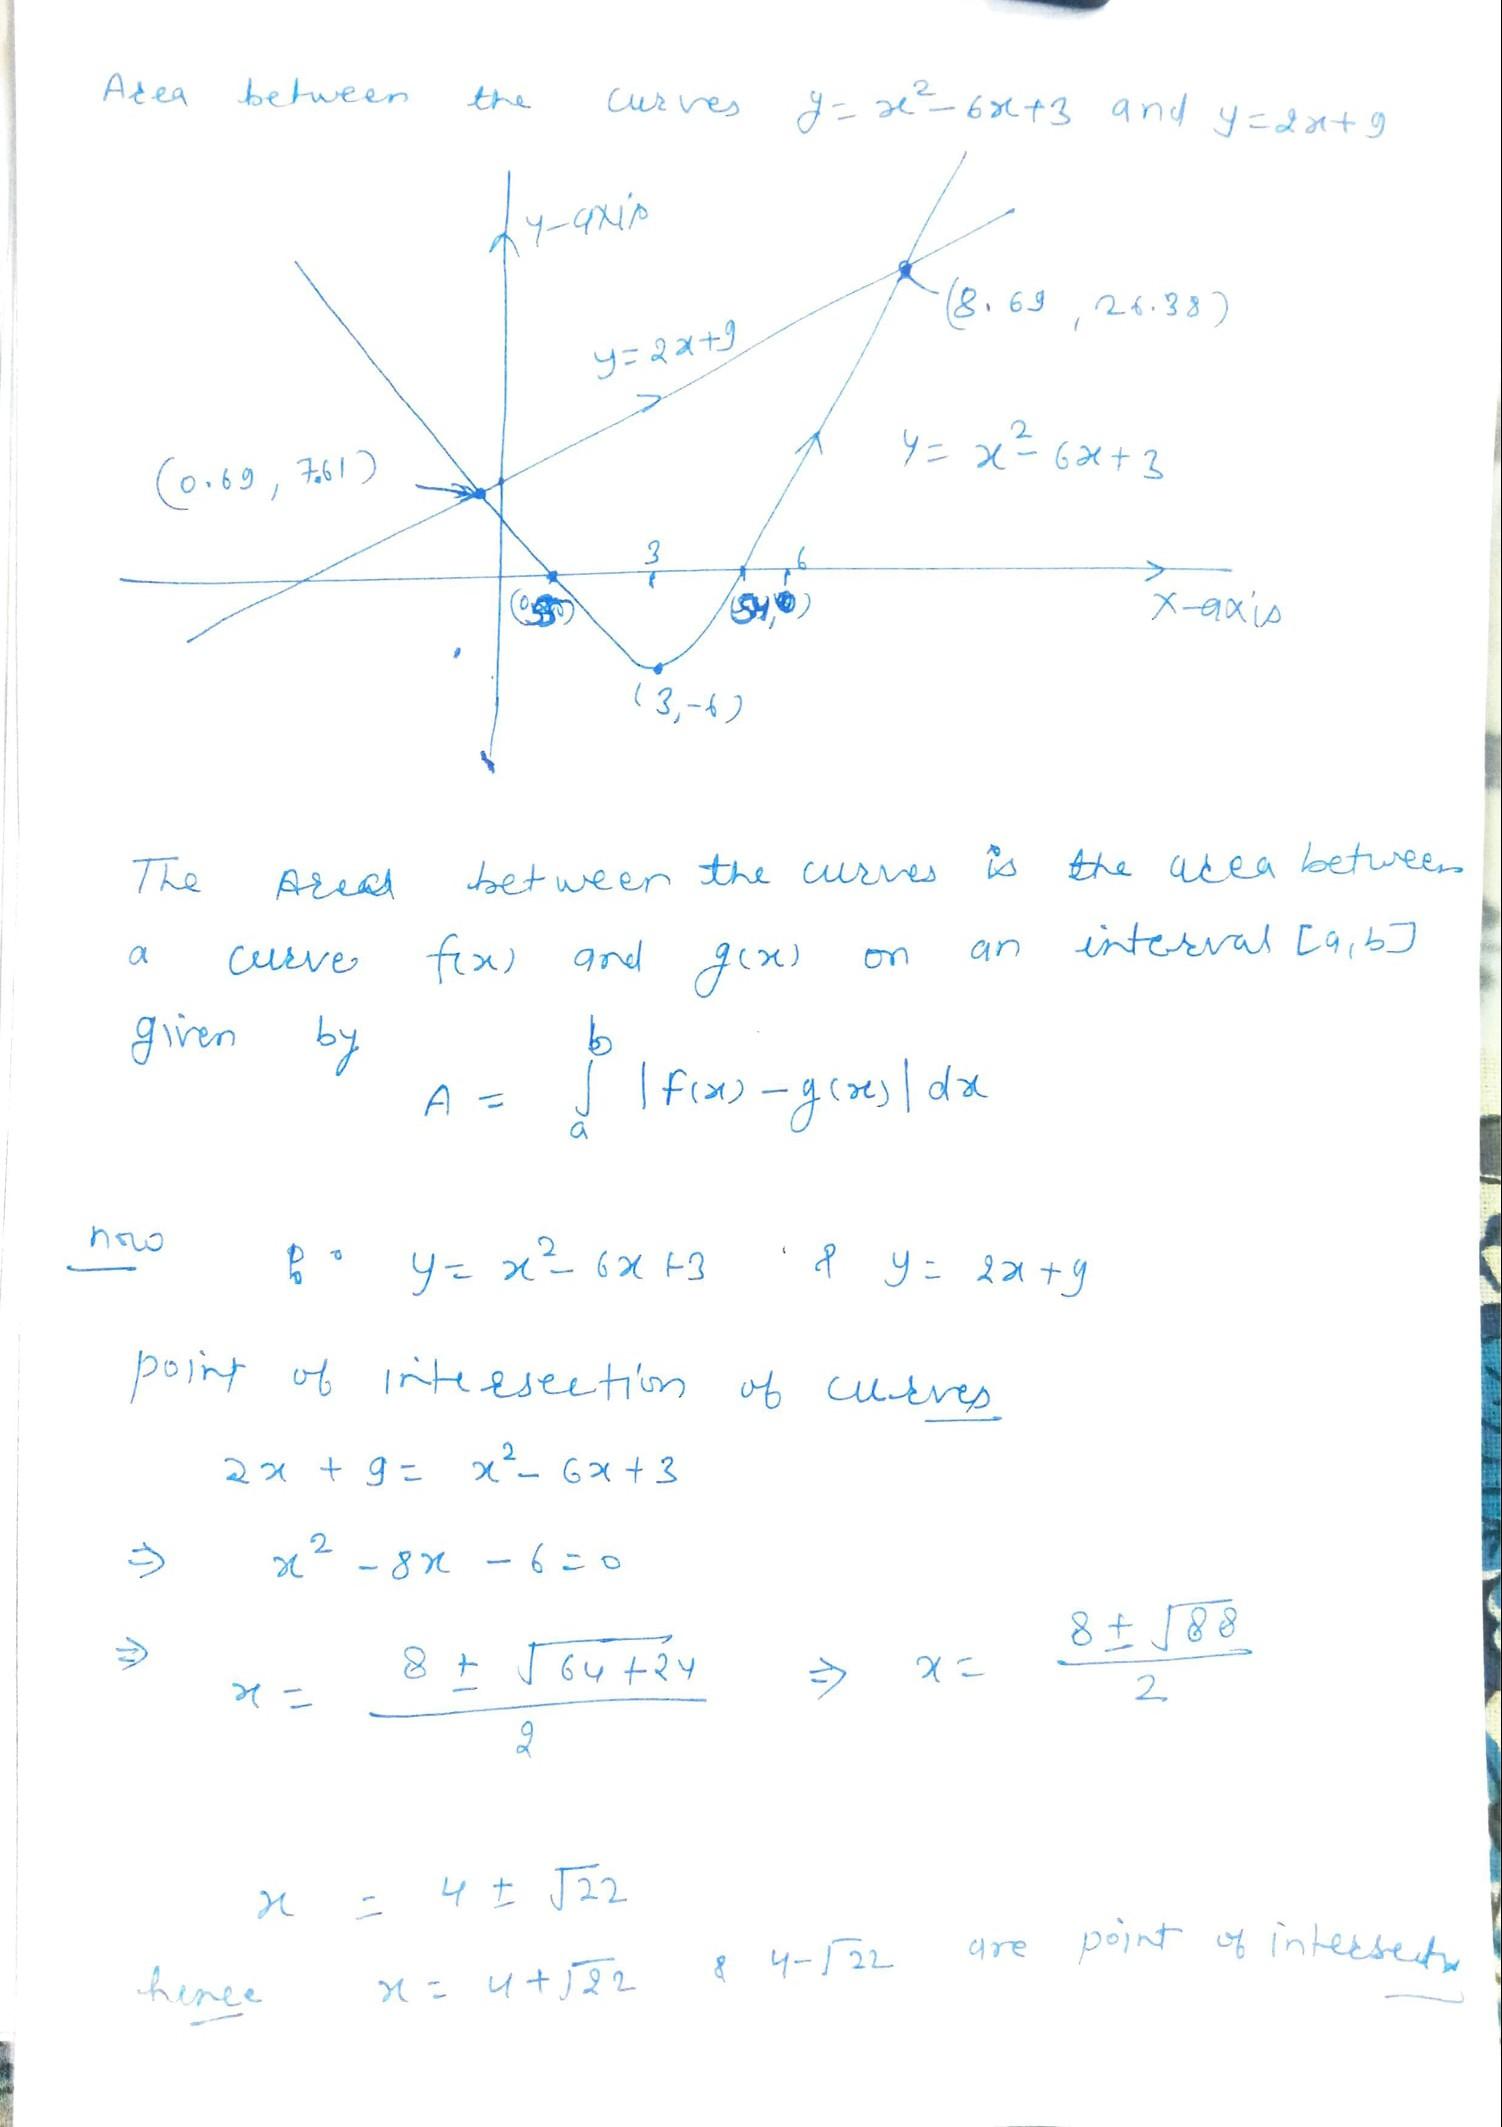 Area between the curves y = x² - 6x + 3 and y = 2x + 9
y-axis
(8.69, 26.38)
y = 2x+9
y = x² - 6x + 3
(0.69, 7.61)
3
6
x-axis
(3, -6)
The Area between the curves is the area between
a curve f(x) and g(x) on an interval [a, b]
given by
A = ∫ₐᵇ |f(x) - g(x)| dx
now y = x² - 6x + 3 & y = 2x + 9
point of intersection of curves
2x + 9 = x² - 6x + 3
⇒ x² - 8x - 6 = 0
⇒ x = (8 ± √(64 + 24))/2 ⇒ x = (8 ± √88)/2
x = 4 ± √22
hence x = 4 + √22 & 4 - √22 are point of